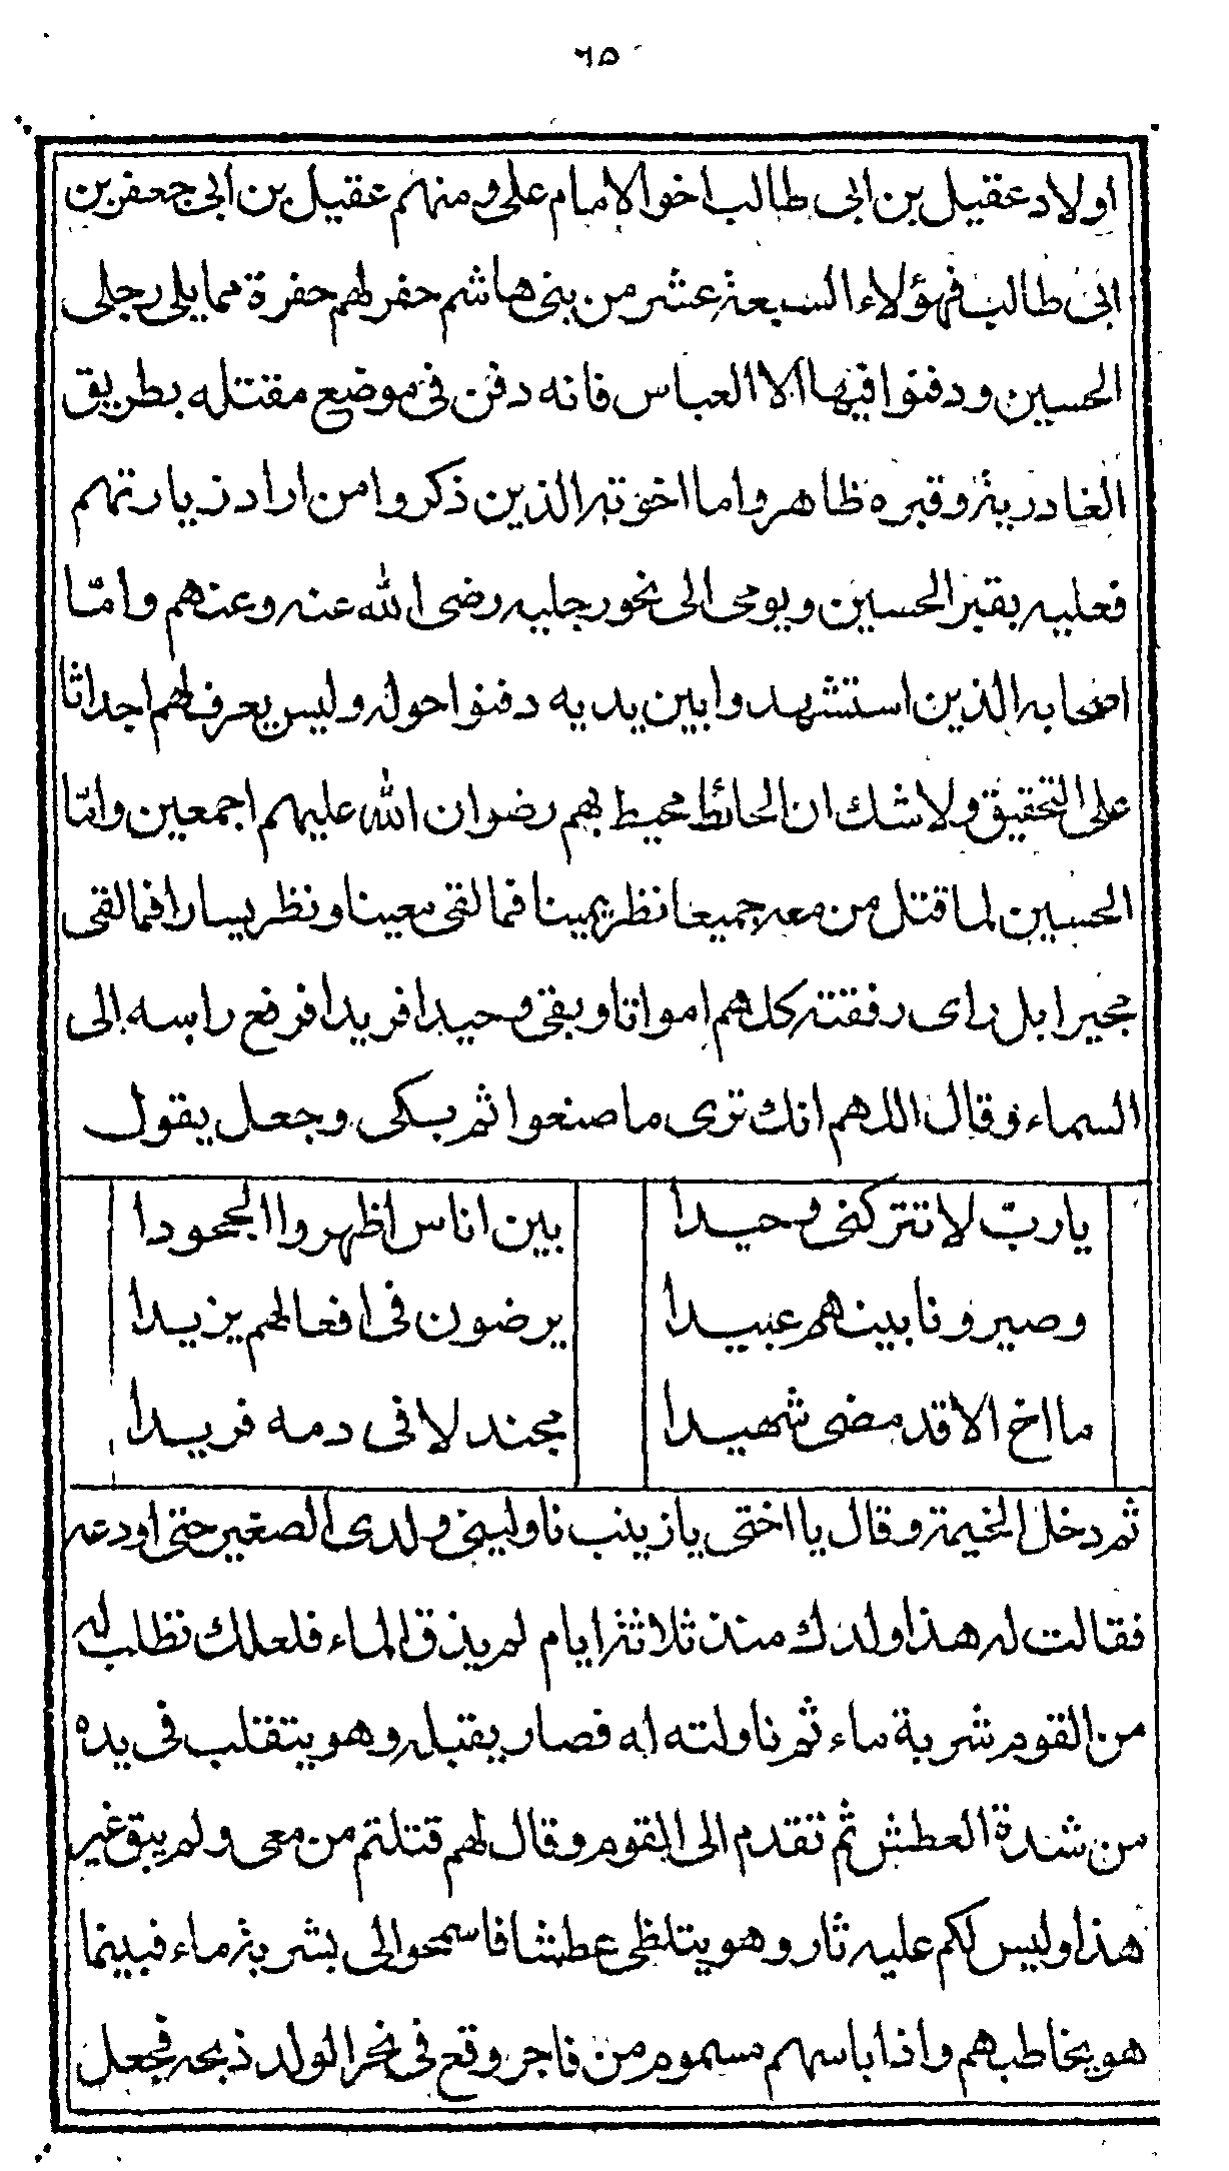 ٦٥
اولاد عقيل بن ابى طالب اخو الامام على ومنهم عقيل بن ابى جعفر بن
ابى طالب فهؤلاء السبعة عشر من بنى هاشم حفر لهم حفرة مما يلى رجلى
الحسين ودفنوا فيها الا العباس فانه دفن فى موضع مقتله بطريق
الغادرية وقبره ظاهر واما اخوته الذين ذكروا من اراد زيارتهم
فعليه بقبر الحسين ويومى الى نحو رجليه رضى الله عنه وعنهم وامّا
اصحابه الذين استشهدوا بين يديه دفنوا حوله وليس يعرف لهم اجداثا
على التحقيق ولا شك ان الحائط محيط بهم رضوان الله عليهم اجمعين وامّا
الحسين لما قتل من معه جميعا نظر يمينا فما لقى معينا ونظر يسارا فما لقى
مجيرا بل راى رفقته كلهم امواتا وبقى وحيدا فريدا فرفع راسه الى
السماء وقال اللهم انك ترى ما صنعوا ثم بكى وجعل يقول
يا ربّ لا تتركنى وحيدا بين اناس اظهروا الجحودا
وصيرونا بينهم عبيدا يرضون فى افعالهم يزيدا
ما اخ الا قد مضى شهيدا مجندلا فى دمه فريدا
ثم دخل الخيمة وقال يا اختى يا زينب ناولينى ولدى الصغير حتى اودعه
فقالت له هذا ولدك منذ ثلاثة ايام لم يذق الماء فلعلك تطلب له
من القوم شربة ماء ثم ناولته له فصار يقبله وهو يتقلب فى يده
من شدة العطش ثم تقدم الى القوم وقال لهم قتلتم من معى ولم يبق غير
هذا وليس لكم عليه ثار وهو يتلظى عطشا فاسمحوا لى بشربة ماء فبينما
هو يخاطبهم واذا باسهم مسموم من فاجر وقع فى نحر الولد ذبحه فجعل